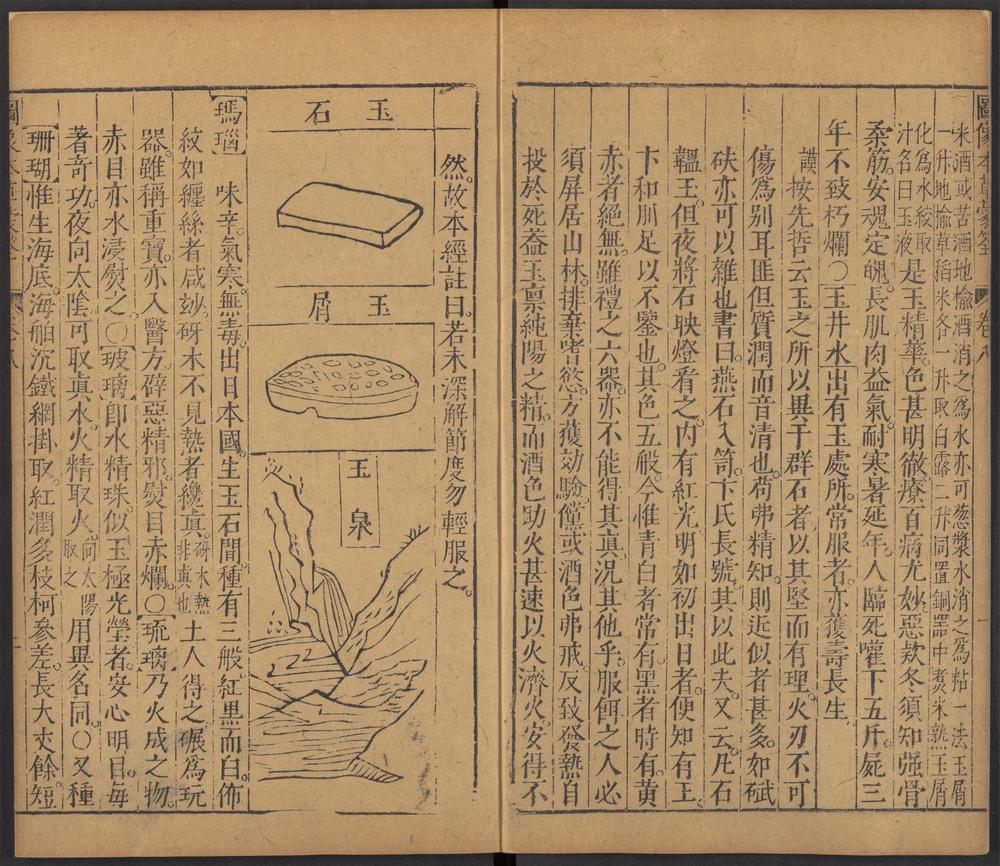 圖像本草蒙筌 卷八 一
米酒或苦酒地榆酒消之為水亦可葱漿水消之為粘一法玉屑
一升地榆草稻米各一升取白露二升同置銅器中煮米熟玉屑
化為水絞取
汁名曰玉液是玉精華色甚明徹療百病尤妙惡欬冬須知强骨
柔筋安魂定魄長肌肉益氣耐寒暑延年人臨死嚾下五斤屍三
年不致朽爛○玉井水出有玉處所常服者亦獲壽長生
謨按先哲云玉之所以異于群石者以其堅而有理火刃不可
傷為別耳匪但質潤而音清也苟弗精知則近似者甚多如碔
砆亦可以雜也書曰燕石入笥卞氏長號其以此夫又云凡石
韞玉但夜將石映燈看之内有紅光明如初出日者便知有玉
卞和刖足以不鑒也其色五般今惟青白者常有黑者時有黄
赤者絕無雖禮之六器亦不能得其真况其他乎服餌之人必
須屏居山林排棄嗜慾方獲効驗僅或酒色弗戒反致發熱自
投於死葢玉禀純陽之精而酒色助火甚速以火濟火安得不
然故本經註曰若未深解節度勿輕服之
玉石
玉屑
玉泉
瑪瑙 味辛氣寒無毒出日本國生玉石間種有三般紅黒而白佈
紋如纒絲者咸妙砑木不見熱者纔真砑木熱非真也土人得之碾為玩
器雖稱重寳亦入醫方辟惡精邪熨目赤爛○琉璃乃火成之物
赤目亦水浸熨之○玻璃卽水精珠似玉極光瑩者安心明目每
著奇功夜向太陰可取真水火精取火向太陽取之用異名同○又種
珊瑚惟生海底海舶沉鐵網掛取紅潤多枝柯參差長大丈餘短